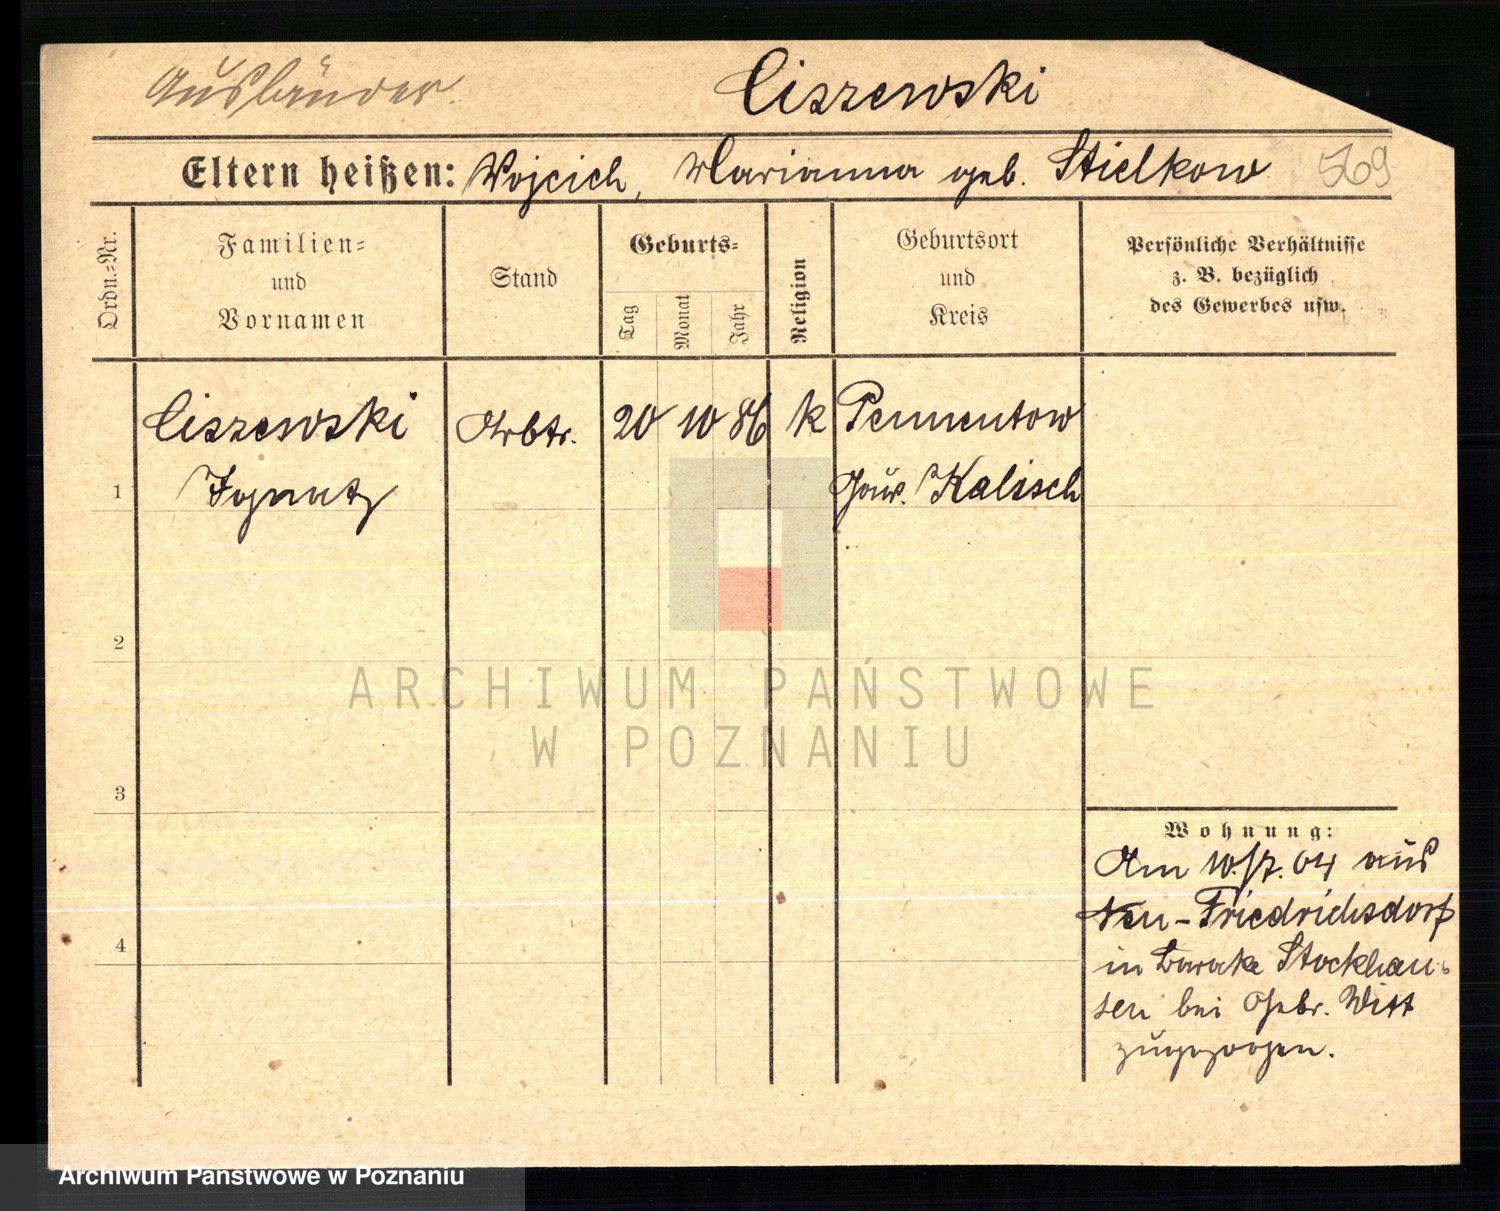 Ausländer.
Ciszewski
Eltern heißen: Wojcich, Marianna geb. Stielkow 569
Ordn.-Nr.
Familien-
und
Vornamen
Stand
Geburts-
Tag
Monat
Jahr
Religion
Geburtsort
und
Kreis
Persönliche Verhältnisse
z. B. bezüglich
des Gewerbes usw.
Ciszewski Arbtr. 20 10 86 k Pennentow
1 Ignatz Gouv. Kalisch
2
ARCHIWUM PAŃSTWOWE
W POZNANIU
3
Wohnung:
Am 10./7. 04 aus
Neu-Friedrichsdorf
4
in Barake Stockhau-
sen bei Gebr. Witt
zugezogen.
Archiwum Państwowe w Poznaniu